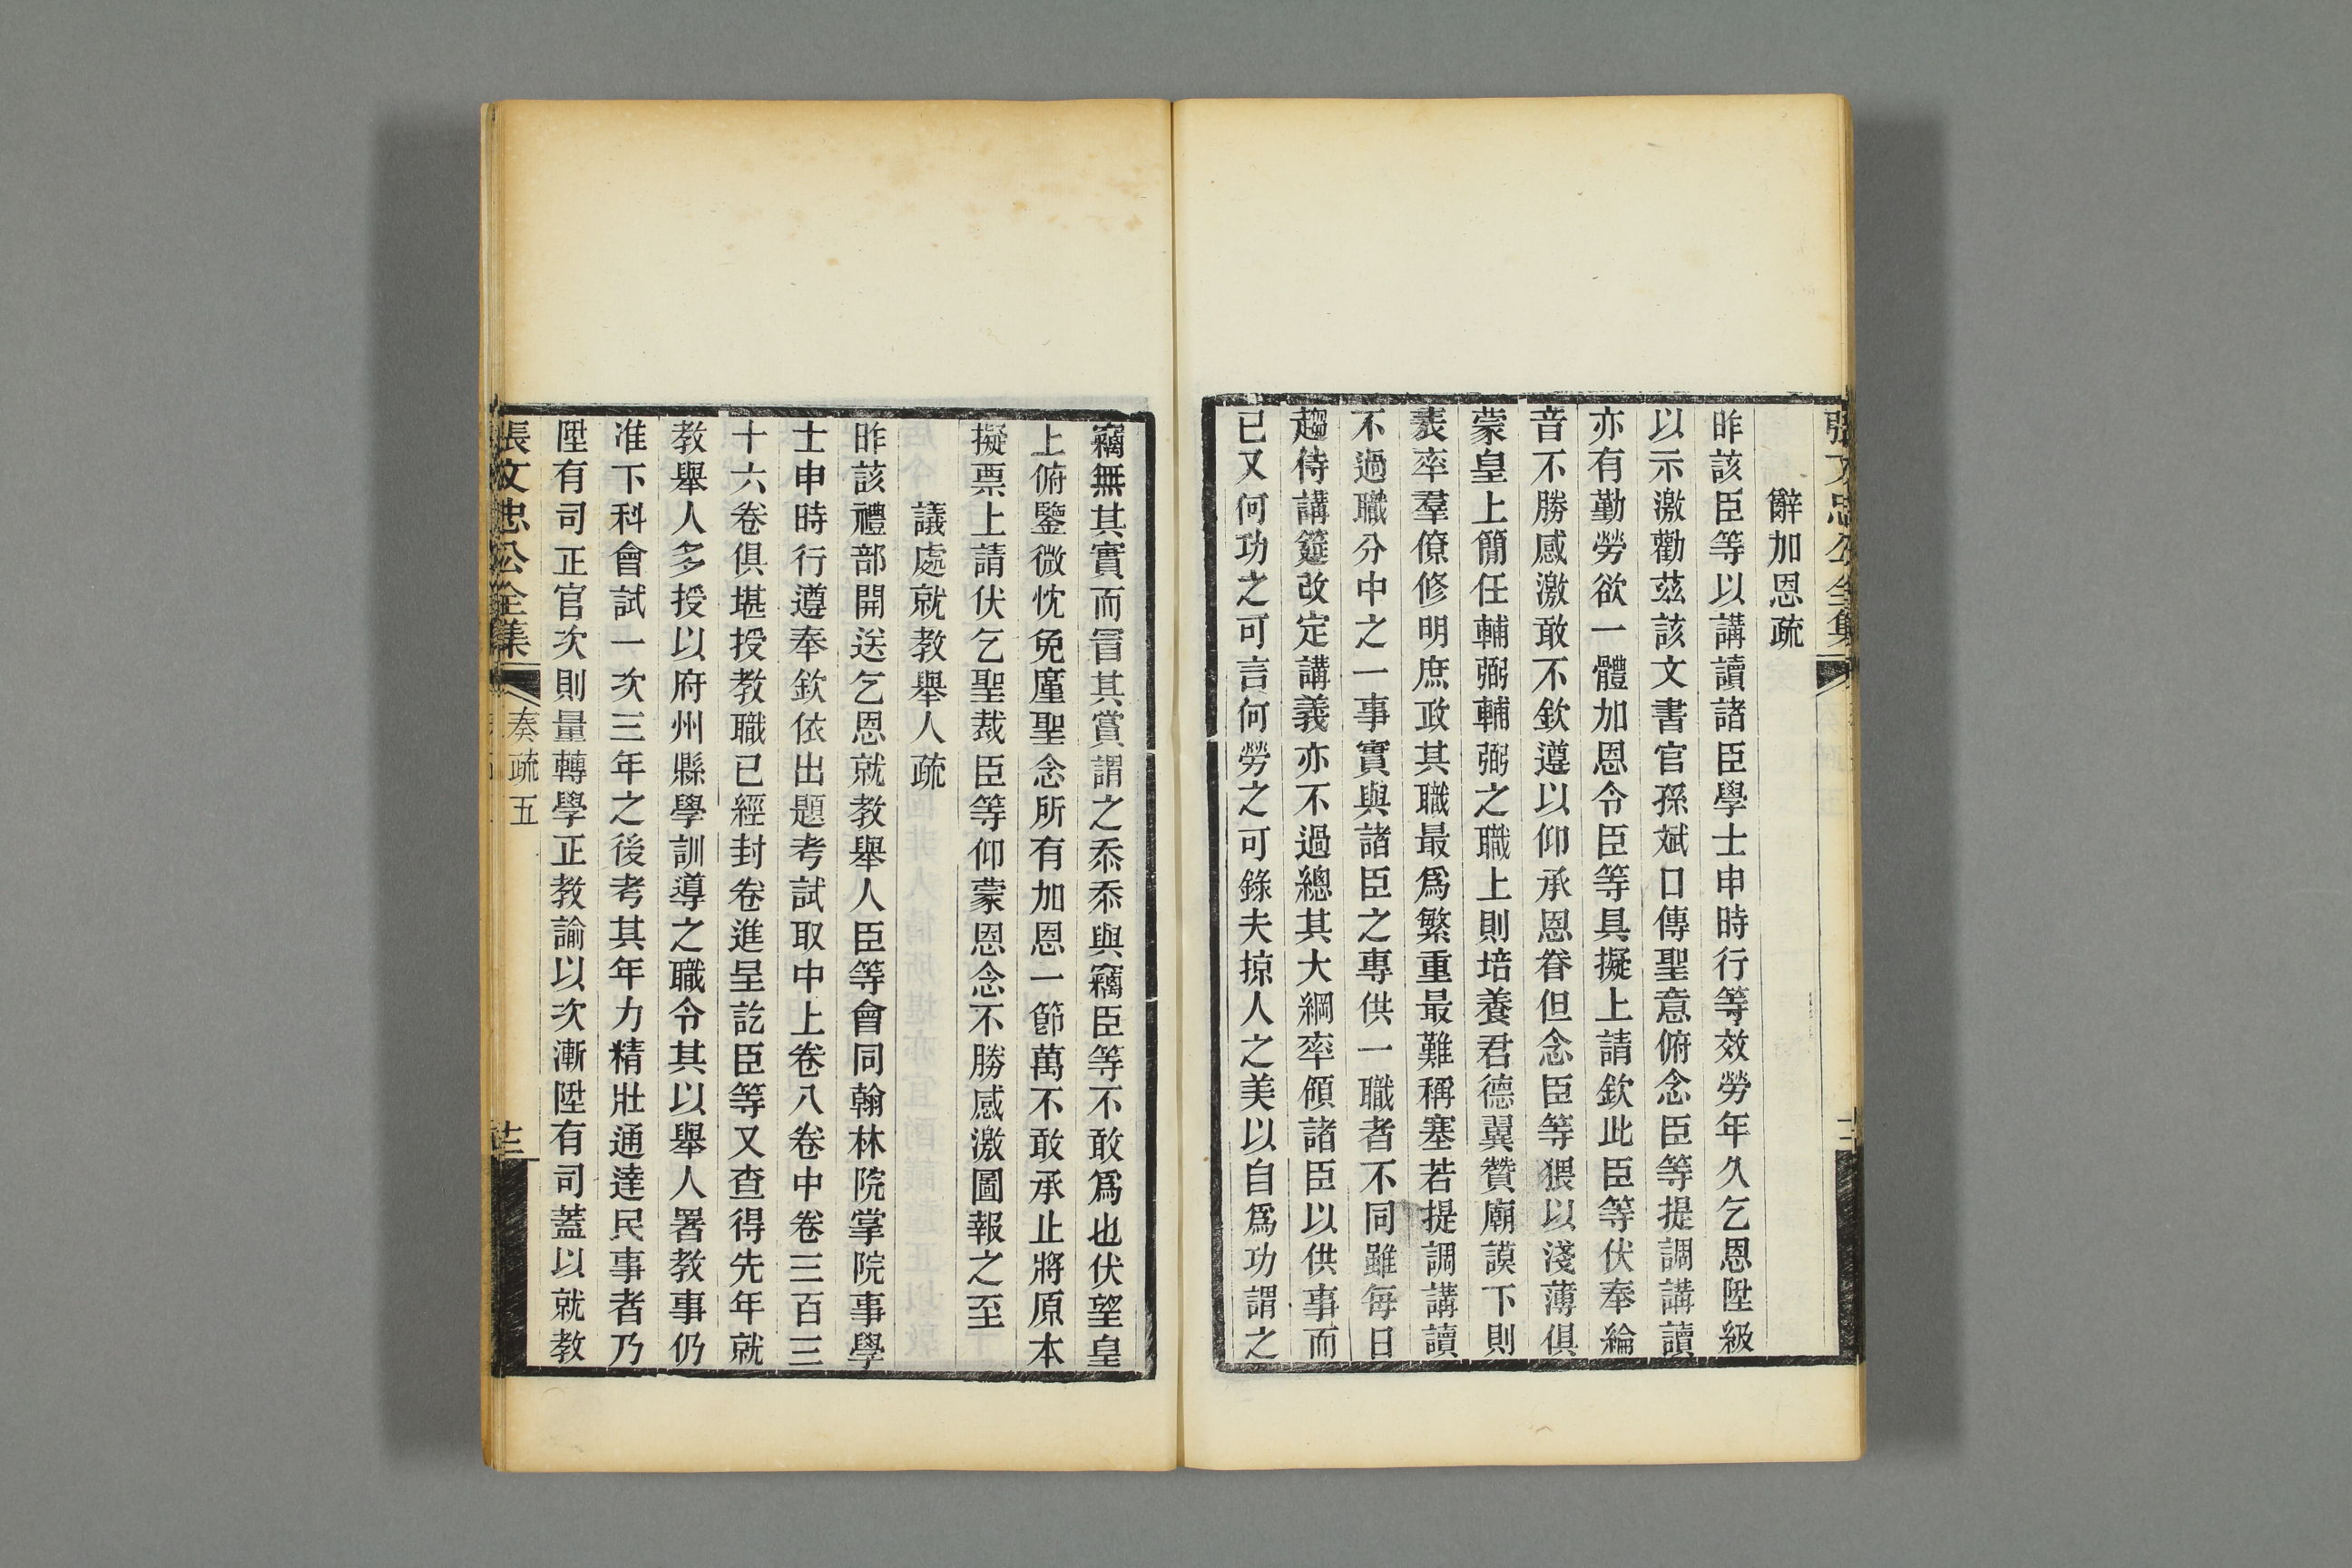 辭加恩疏
昨該臣等以講讀諸臣學士申時行等效勞年久乞恩陞級
以示激勸茲該文書官孫斌口傳聖意俯念臣等提調講讀
亦有勤勞欲一體加恩令臣等具擬上請欽此臣等伏奉綸
音不勝感激敢不欽遵以仰承恩眷但念臣等猥以淺薄俱
蒙皇上簡任輔弼輔弼之職上則培養君德翼贊廟謨下則
表率羣僚修明庶政其職最爲繁重最難稱塞若提調講讀
不過職分中之一事實與諸臣之專供一職者不同雖每日
趨侍講筵改定講義亦不過總其大綱率領諸臣以供事而
已又何功之可言何勞之可錄夫掠人之美以自爲功謂之
竊無其實而冒其賞謂之忝忝與竊臣等不敢爲也伏望皇
上俯鑒微忱免廑聖念所有加恩一節萬不敢承止將原本
擬票上請伏乞聖裁臣等仰蒙恩念不勝感激圖報之至
議處就教舉人疏
昨該禮部開送乞恩就教舉人臣等會同翰林院掌院事學
士申時行遵奉欽依出題考試取中上卷八卷中卷三百三
十六卷俱堪授教職已經封卷進呈訖臣等又查得先年就
教舉人多授以府州縣學訓導之職令其以舉人署教事仍
准下科會試一次三年之後考其年力精壯通達民事者乃
陞有司正官次則量轉學正教諭以次漸陞有司蓋以就教
張文忠公全集
奏疏五